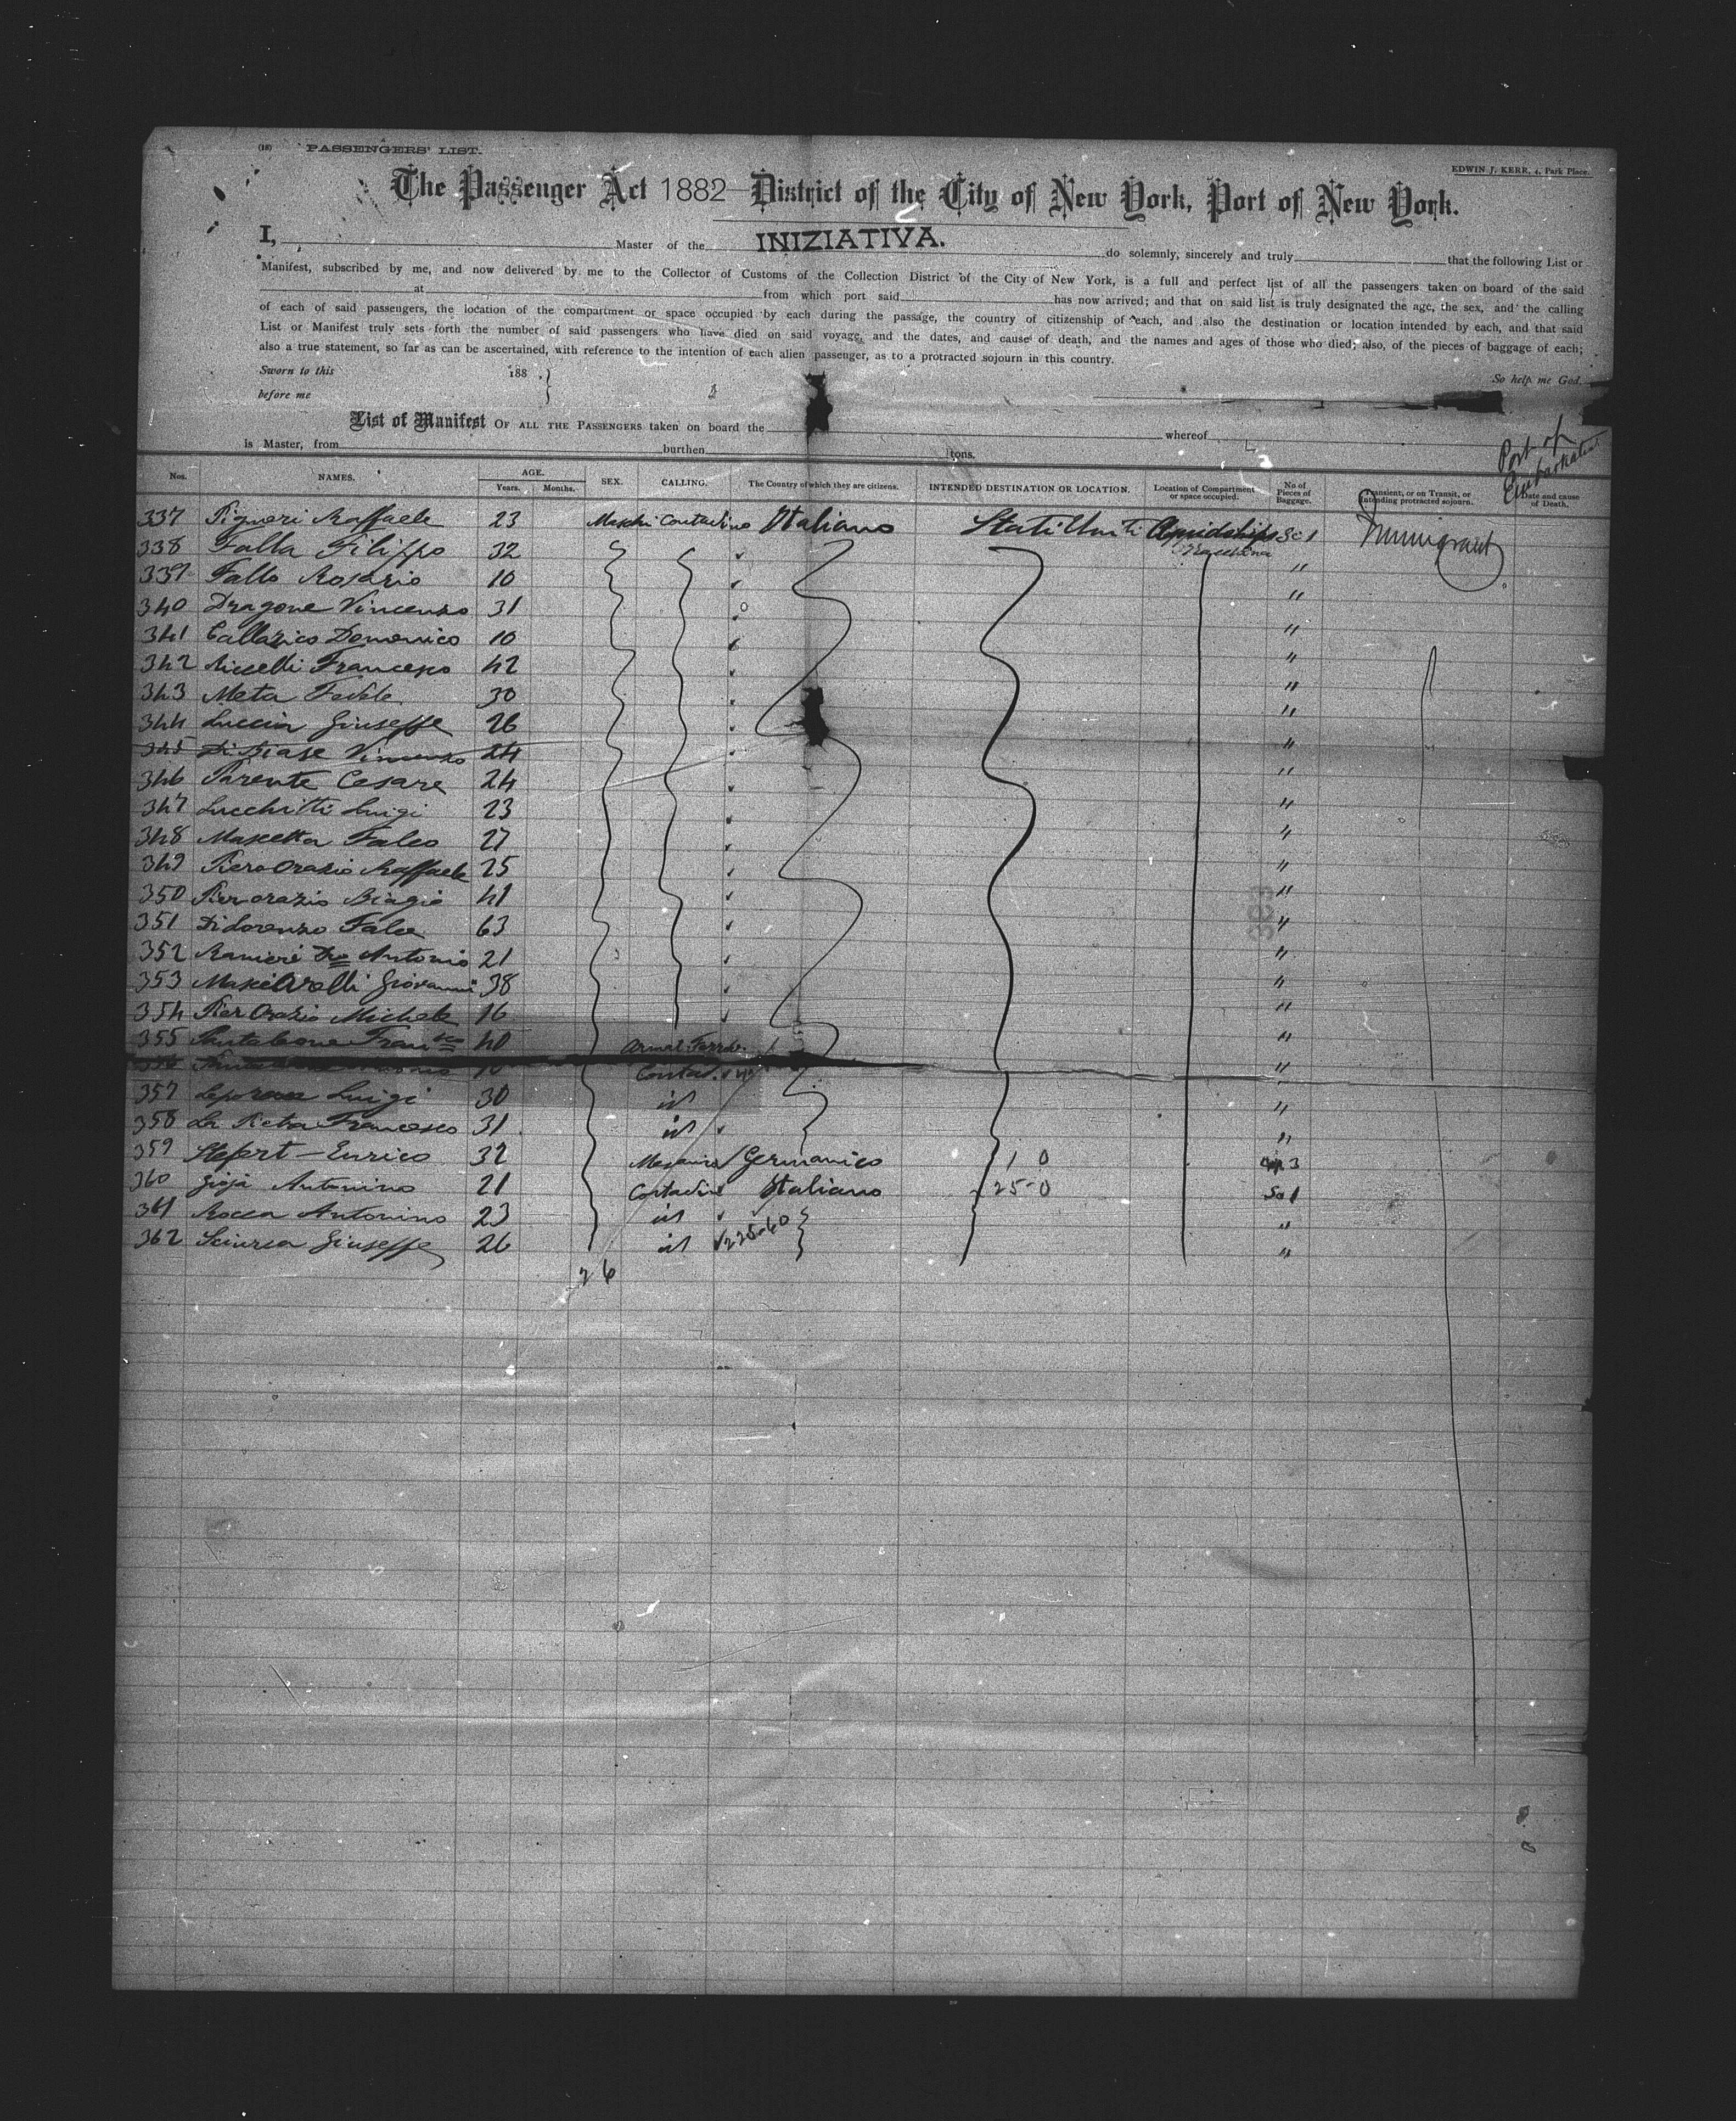 (18) PASSENGERS' LIST.
EDWIN J. KERR, 4, Park Place.
The Passenger Act 1882 District of the City of New York, Port of New York.
I, Master of the INIZIATIVA. do solemnly, sincerely and truly that the following List or
Manifest, subscribed by me, and now delivered by me to the Collector of Customs of the Collection District of the City of New York, is a full and perfect list of all the passengers taken on board of the said
at from which port said has now arrived; and that on said list is truly designated the age, the sex, and the calling
of each of said passengers, the location of the compartment or space occupied by each during the passage, the country of citizenship of each, and also the destination or location intended by each, and that said
List or Manifest truly sets forth the number of said passengers who have died on said voyage, and the dates, and cause of death, and the names and ages of those who died; also, of the pieces of baggage of each;
also a true statement, so far as can be ascertained, with reference to the intention of each alien passenger, as to a protracted sojourn in this country.
Sworn to this 188 . So help me God.
before me
List of Manifest OF ALL THE PASSENGERS taken on board the whereof
is Master, from burthen tons.
Port of Embarkation
Nos. NAMES. AGE. Years. Months. SEX. CALLING. The Country of which they are citizens. INTENDED DESTINATION OR LOCATION. Location of Compartment or space occupied. No of Pieces of Baggage. Transient, or on Transit, or intending protracted sojourn. Date and cause of Death.
337 Pigneri Raffaele 23 Maschi Contadino Italiano Stati Uniti Amidships Sc 1 Immigrant
338 Falla Filippo 32 "
339 Fallo Rosario 10 "
340 Dragone Vincenzo 31 "
341 Callarico Domenico 10 "
342 Riccelli Francesco 42 "
343 Meta Fedele 30 "
344 Luccia Giuseppe 26 "
345 Di Biase Vincenzo 24 "
346 Parente Cesare 24 "
347 Lucchitti Luigi 23 "
348 Mascetta Falco 27 "
349 Piero Orazio Raffaele 25 "
350 Pierorazio Biagio 41 "
351 Di Lorenzo Falco 63 "
352 Ranieri Antonio 21 "
353 Masciarelli Giovanni 38 "
354 Pier Orazio Michele 16 "
355 Pantaleone Franco 40 "
Contad. "
357 Luigi 30 id "
358 La Francesco 31 id "
359 Enrico 32 Germanico 1 0 3
360 Gioja Antonino 21 Contadino Italiano 25-0 Sc 1
361 Rocca Antonino 23 id "
362 Sciurca Giuseppe 26 id "
26